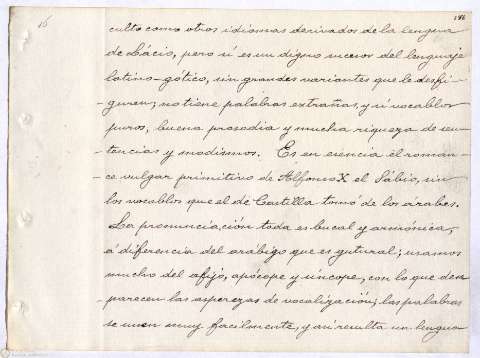 15
186
culto como otros idiomas derivados de la lengua
de Lácio, pero sí es un digno sucesor del lenguaje
latino-gótico, sin grandes variantes que le desfi-
-guren; no tiene palabras extrañas, y sí vocablos
puros, buena prosodia y mucha riqueza de sen-
-tencias y modismos. Es en esencia el roman-
-ce vulgar primitivo de Alfonso X el Sábio, sin
los vocablos que el de Castilla tomó de los árabes.
La pronunciación toda es bucal y armónica,
á diferencia del arábigo que es gutural; usamos
mucho del afijo, apócope y síncope, con lo que desa-
parecen las asperezas de vocalización; las palabras
se unen muy facilmente, y así resulta un lengua-